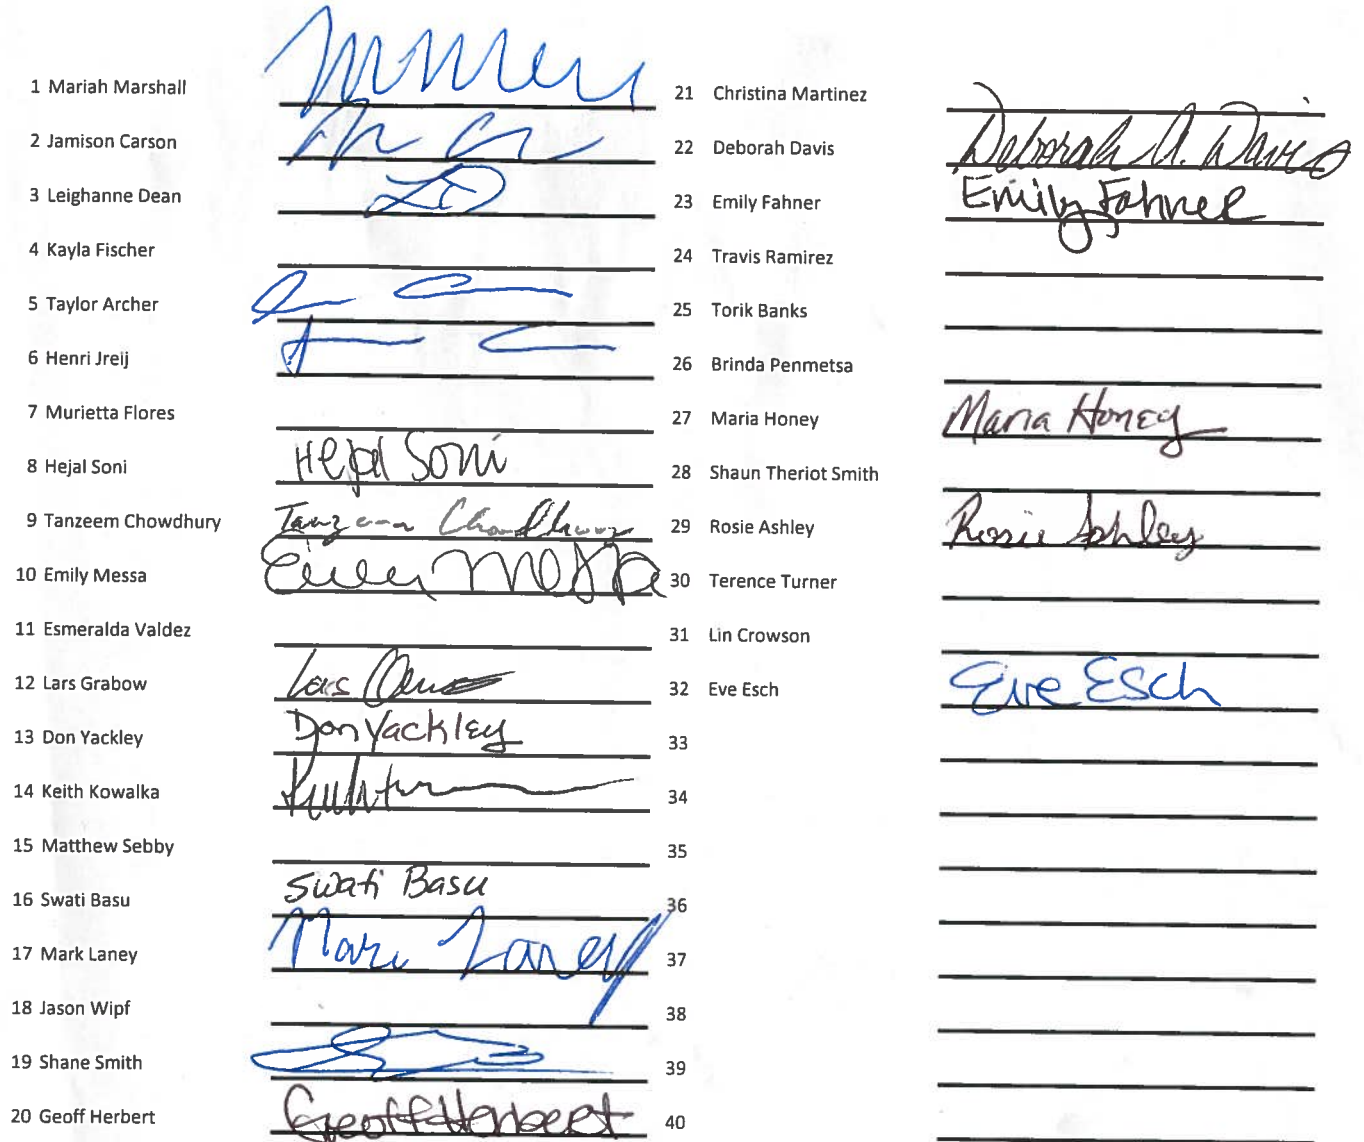 1 Mariah Marshall
2 Jamison Carson
3 Leighanne Dean LD
4 Kayla Fischer
5 Taylor Archer
6 Henri Jreij
7 Murietta Flores
8 Hejal Soni Hejal Soni
9 Tanzeem Chowdhury Tanzeem Chowdhury
10 Emily Messa Emily Messa
11 Esmeralda Valdez
12 Lars Grabow Lars
13 Don Yackley Don Yackley
14 Keith Kowalka
15 Matthew Sebby
16 Swati Basu Swati Basu
17 Mark Laney Mark Laney
18 Jason Wipf
19 Shane Smith
20 Geoff Herbert Geoff Herbert
21 Christina Martinez
22 Deborah Davis Deborah A. Davis
23 Emily Fahner Emily Fahner
24 Travis Ramirez
25 Torik Banks
26 Brinda Penmetsa
27 Maria Honey Maria Honey
28 Shaun Theriot Smith
29 Rosie Ashley Rosie Ashley
30 Terence Turner
31 Lin Crowson
32 Eve Esch Eve Esch
33
34
35
36
37
38
39
40